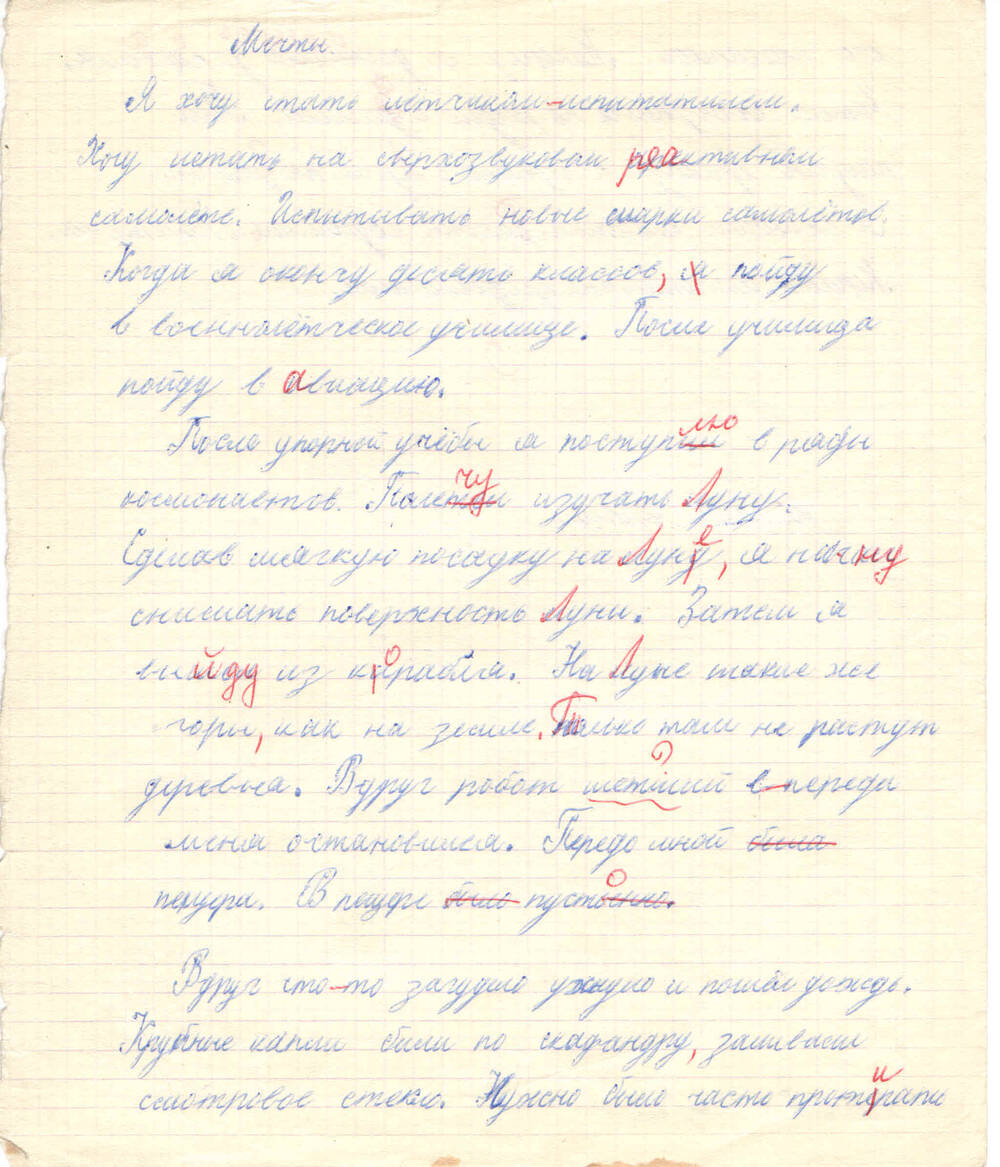 Мечты.
Я хочу стать лётчиком-испытателем.
Хочу летать на сверхзвуковом реактивном
самолёте. Испытывать новые марки самолётов.
Когда я окончу десять классов, я пойду
в военнолётческое училище. После училища
пойду в авиацию.
После упорной учёбы я поступлю в ряды
космонавтов. Полечу изучать Луну.
Сделав мягкую посадку на Луне, я начну
снимать поверхность Луны. Затем я
выйду из корабля. На Луне такие же
горы, как на земле. Только там не растут
деревья. Вдруг робот в переди
меня остановился. Передо мной была
пещера. В пещере было пусто
Вдруг что-то загудело ухнуло и пошёл дождь.
Крупные капли били по скафандру, заливали
смотровое стекло. Нужно было часто протирать